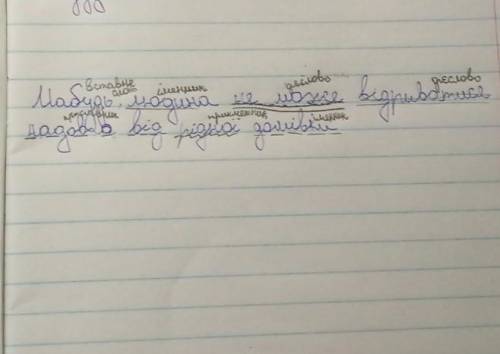 вставне
слово іменник дієслово дієслово
Мабудь, людина не може відриватися
прислівник прикметник іменник
надовго від рідної домівки